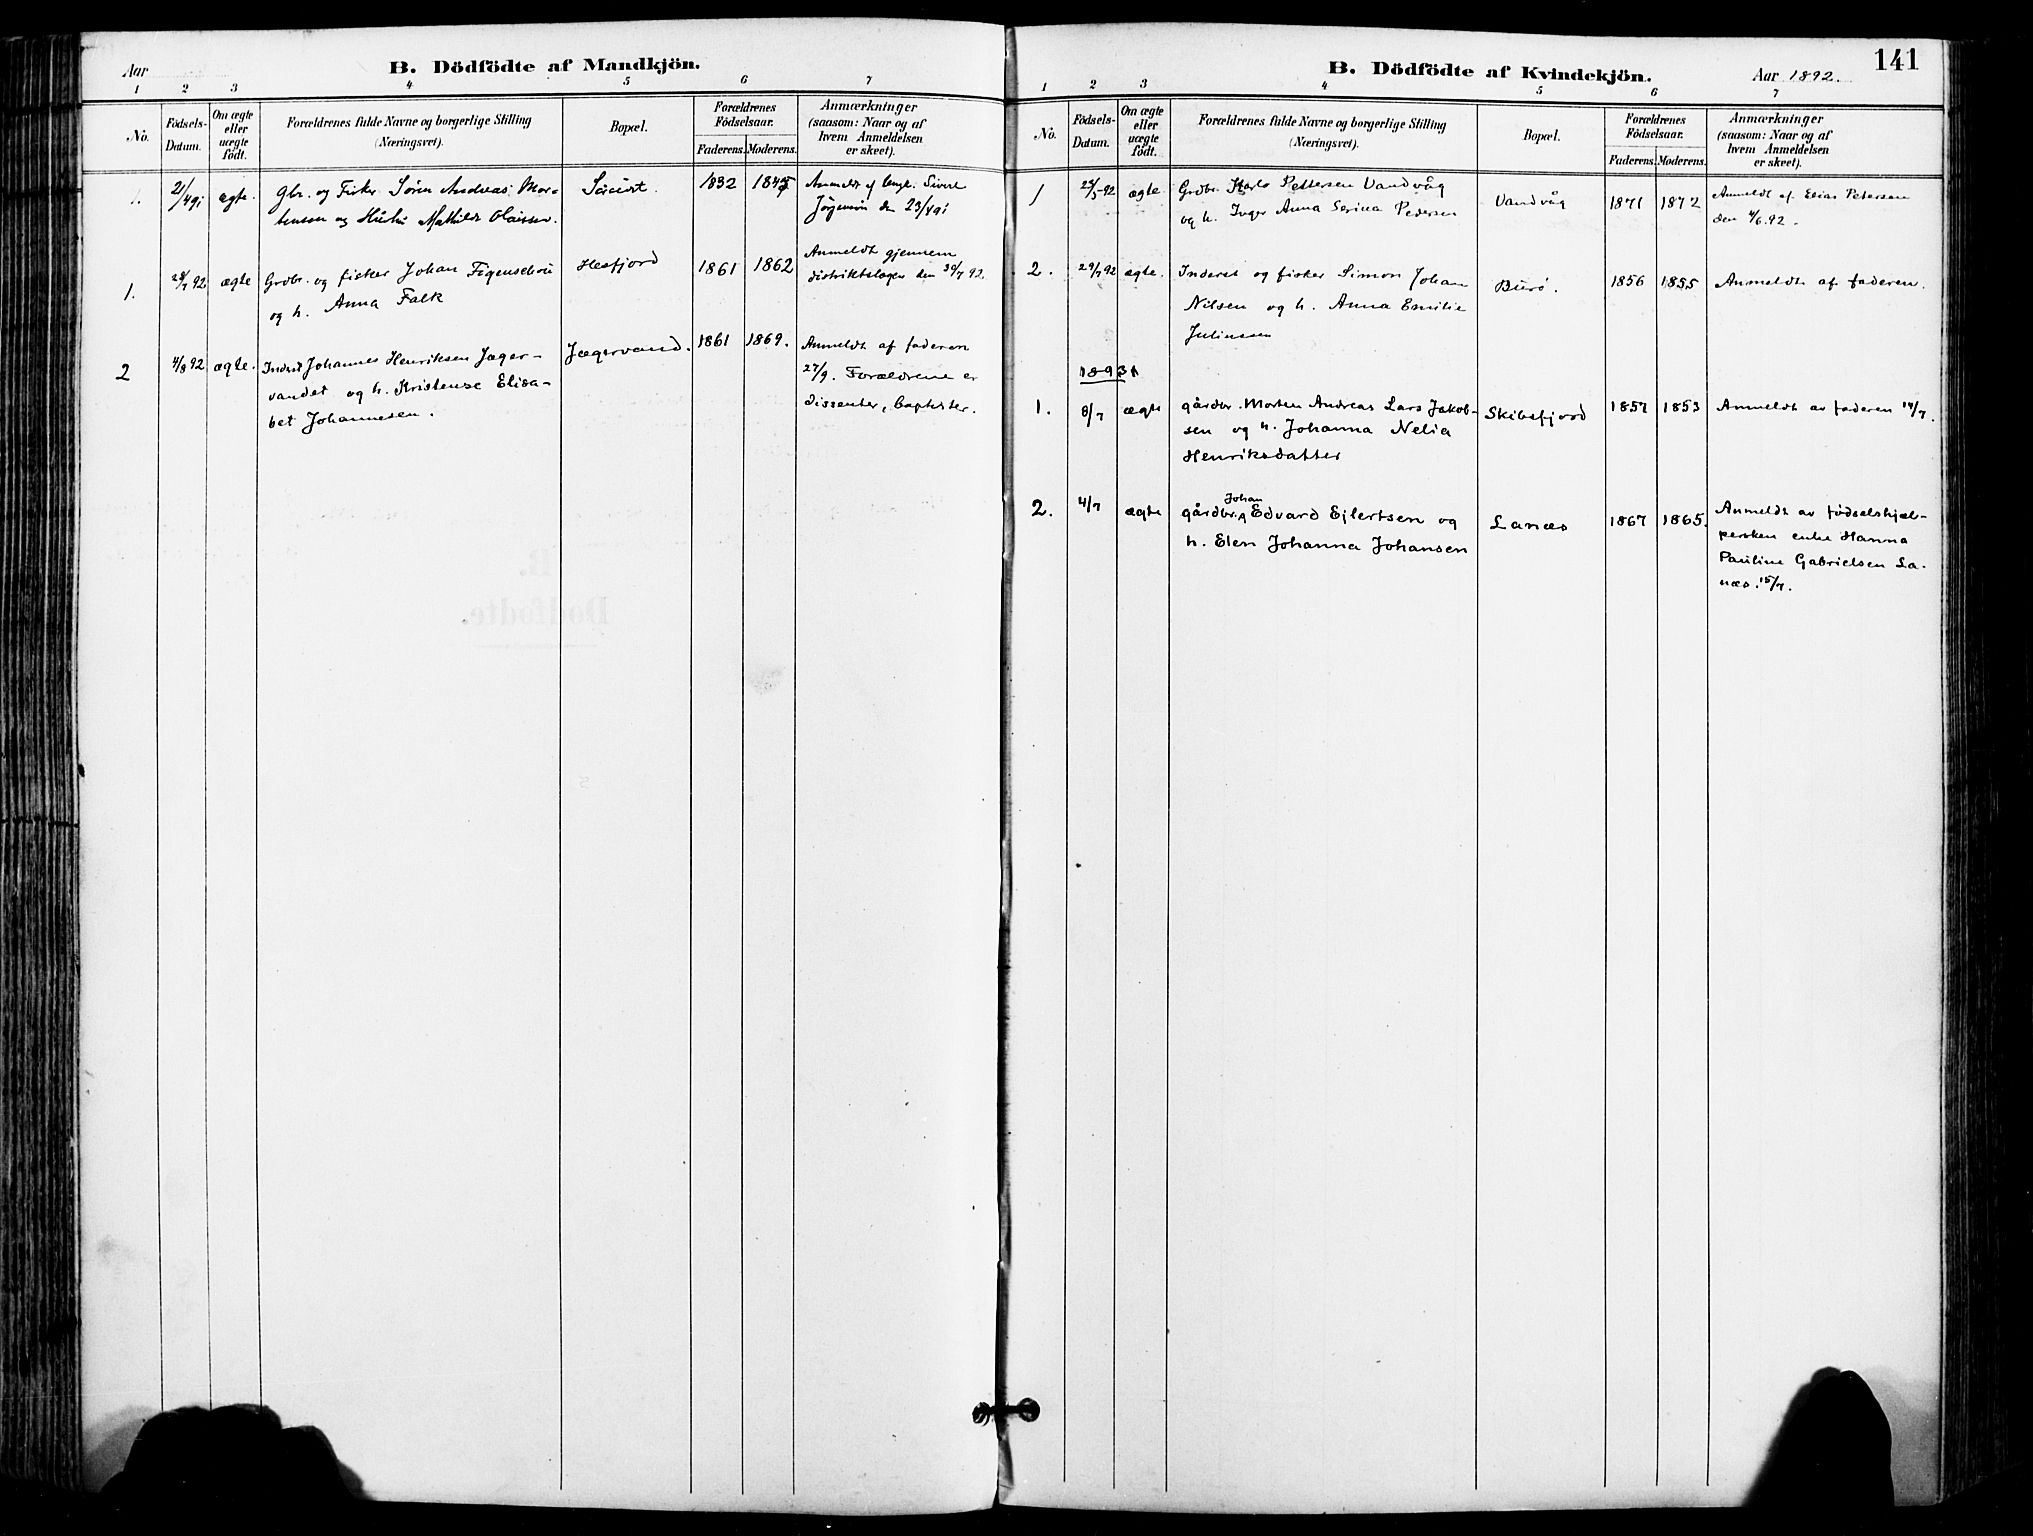 Aar
B. Dödfödte af Mandkjön.
1 2 3 4 5 6 7
No.
Födsels-
Datum.
Om ægte
eller
uægte
födt.
Forældrenes fulde Navne og borgerlige Stilling
(Næringsvei).
Bopæl.
Forældrenes
Födselsaar.
Faderens. Moderens.
Anmærkninger
(saasom: Naar og af
hvem Anmeldelsen
er skeet).
1. 2/4 91 ægte. gbr. og Fisker Søren Andreas Mor-
tensen og Hustru Mathilde Olaissen.
1832
Anmeldt af
Jørgensen den 23/4 91
1. 28/7 92 ægte Grdbr. og fisker Johan Figenschou
og h. Anna Falk
Hesfjord 1861 1862
Anmeldt gjennem
distriktslægen den 30/7 92.
2 4/8 92 ægte. Inderst Johannes Henriksen Jæger-
vandet og h. Kristense Elisa-
bet Johannesen.
Jægervand. 1861 1869.
Anmeldt af faderen
27/9. Forældrene er
dissenter, baptister.
B. Dödfödte af Kvindekjön.
Aar 1892.
141
1 2 3 4 5 6 7
No.
Födsels-
Datum.
Om ægte
eller
uægte
födt.
Forældrenes fulde Navne og borgerlige Stilling
(Næringsvei).
Bopæl.
Forældrenes
Födselsaar.
Faderens. Moderens.
Anmærkninger
(saasom: Naar og af
hvem Anmeldelsen
er skeet).
1 23/5 92 ægte. Grdbr. Karlo Pettersen Vandvåg
og h. Inger Anna Serina Pedersen
Vandvåg 1871 1872
Anmeldt af Elias Petersen
den 4/6.92.
2. 29/7 92 ægte. Inderst og fisker Simon Johan
Nilsen og h. Anna Emilie
Juliussen
Burø. 1856 1855 Anmeldt af faderen.
1893
1. 8/7 ægte gårdbr. Morten Andreas Lars Jakob-
sen og h. Johanna Nelia
Henriksdatter
Skibsfjord 1857 1853 Anmeldt av faderen 14/7.
2. 4/7 ægte gårdbr. Johan Edvard Ejlertsen og
h. Elen Johanna Johansen
Lanæs 1867 1865.
Anmeldt av fødselshjæl-
persken enke Hanna
Pauline Gabrielsen La-
næs. 15/7.